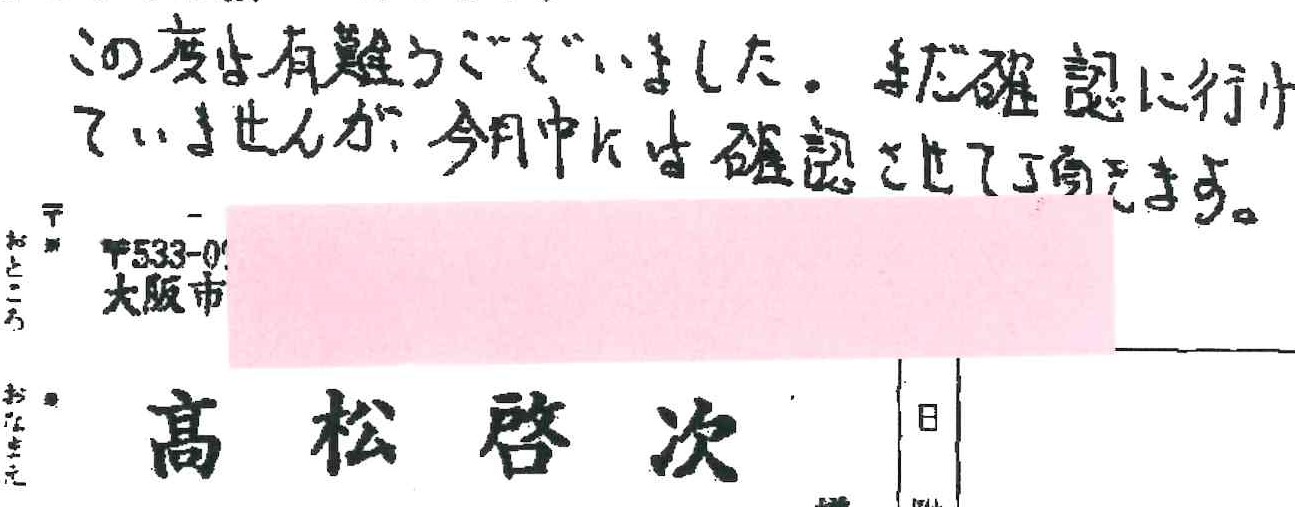 この度は有難うございました。まだ確認に行け
ていませんが、今月中には確認させて頂きます。
〒 -
おところ
〒533-0
大阪市
おなまえ
髙松啓次
日
様